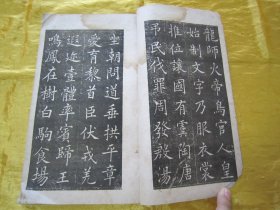 龍師火帝鳥官人皇
始制文字乃服衣裳
推位讓國有虞陶唐
吊民伐罪周發殷湯
坐朝問道垂拱平章
愛育黎首臣伏戎羌
遐迩壹體率賓歸王
鳴鳳在樹白駒食場